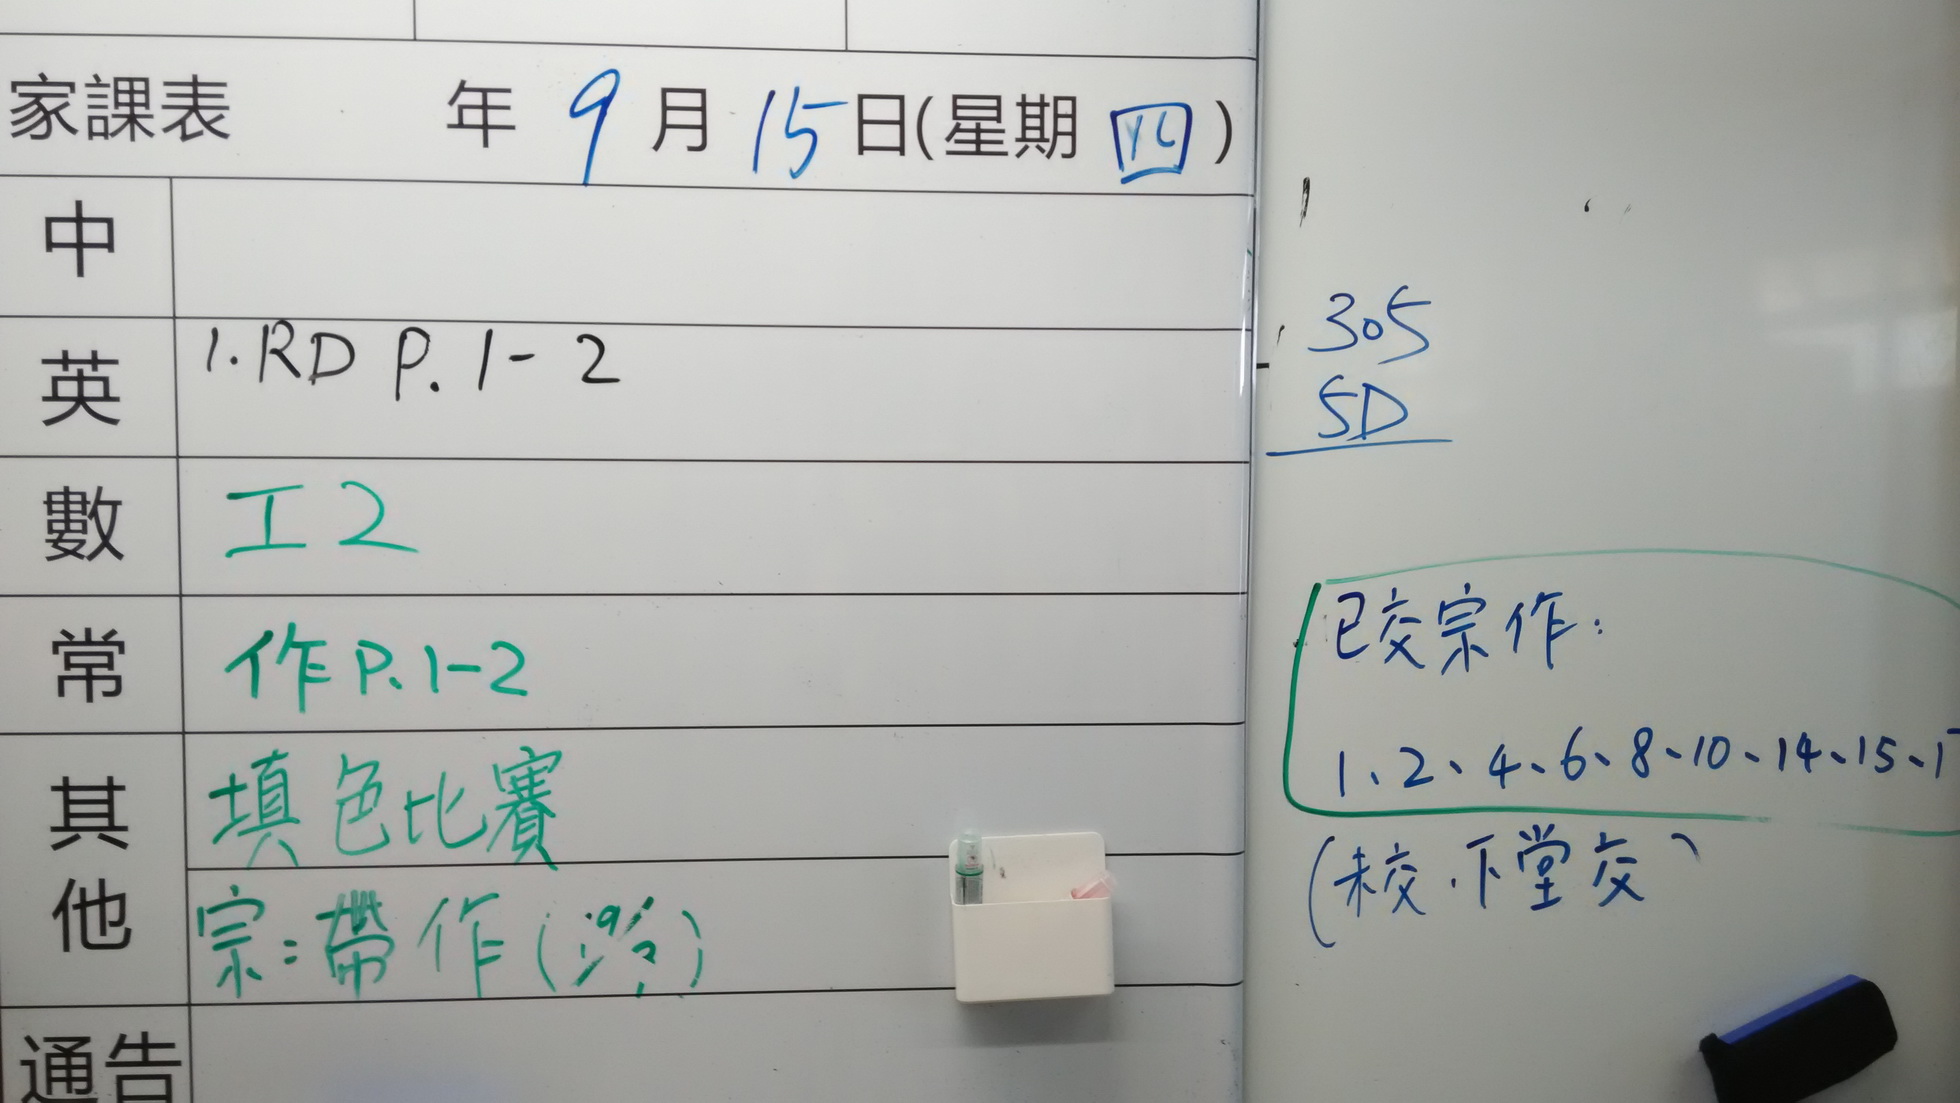 家課表 年 9 月 15 日(星期 四 )
中
英 1. RD P. 1 - 2
數 工2
常 作 P. 1-2
其他 填色比賽
宗：帶作(
通告
305
5D
已交宗作：
1、2、4、6、8、10、14、15、
(未交．下堂交)